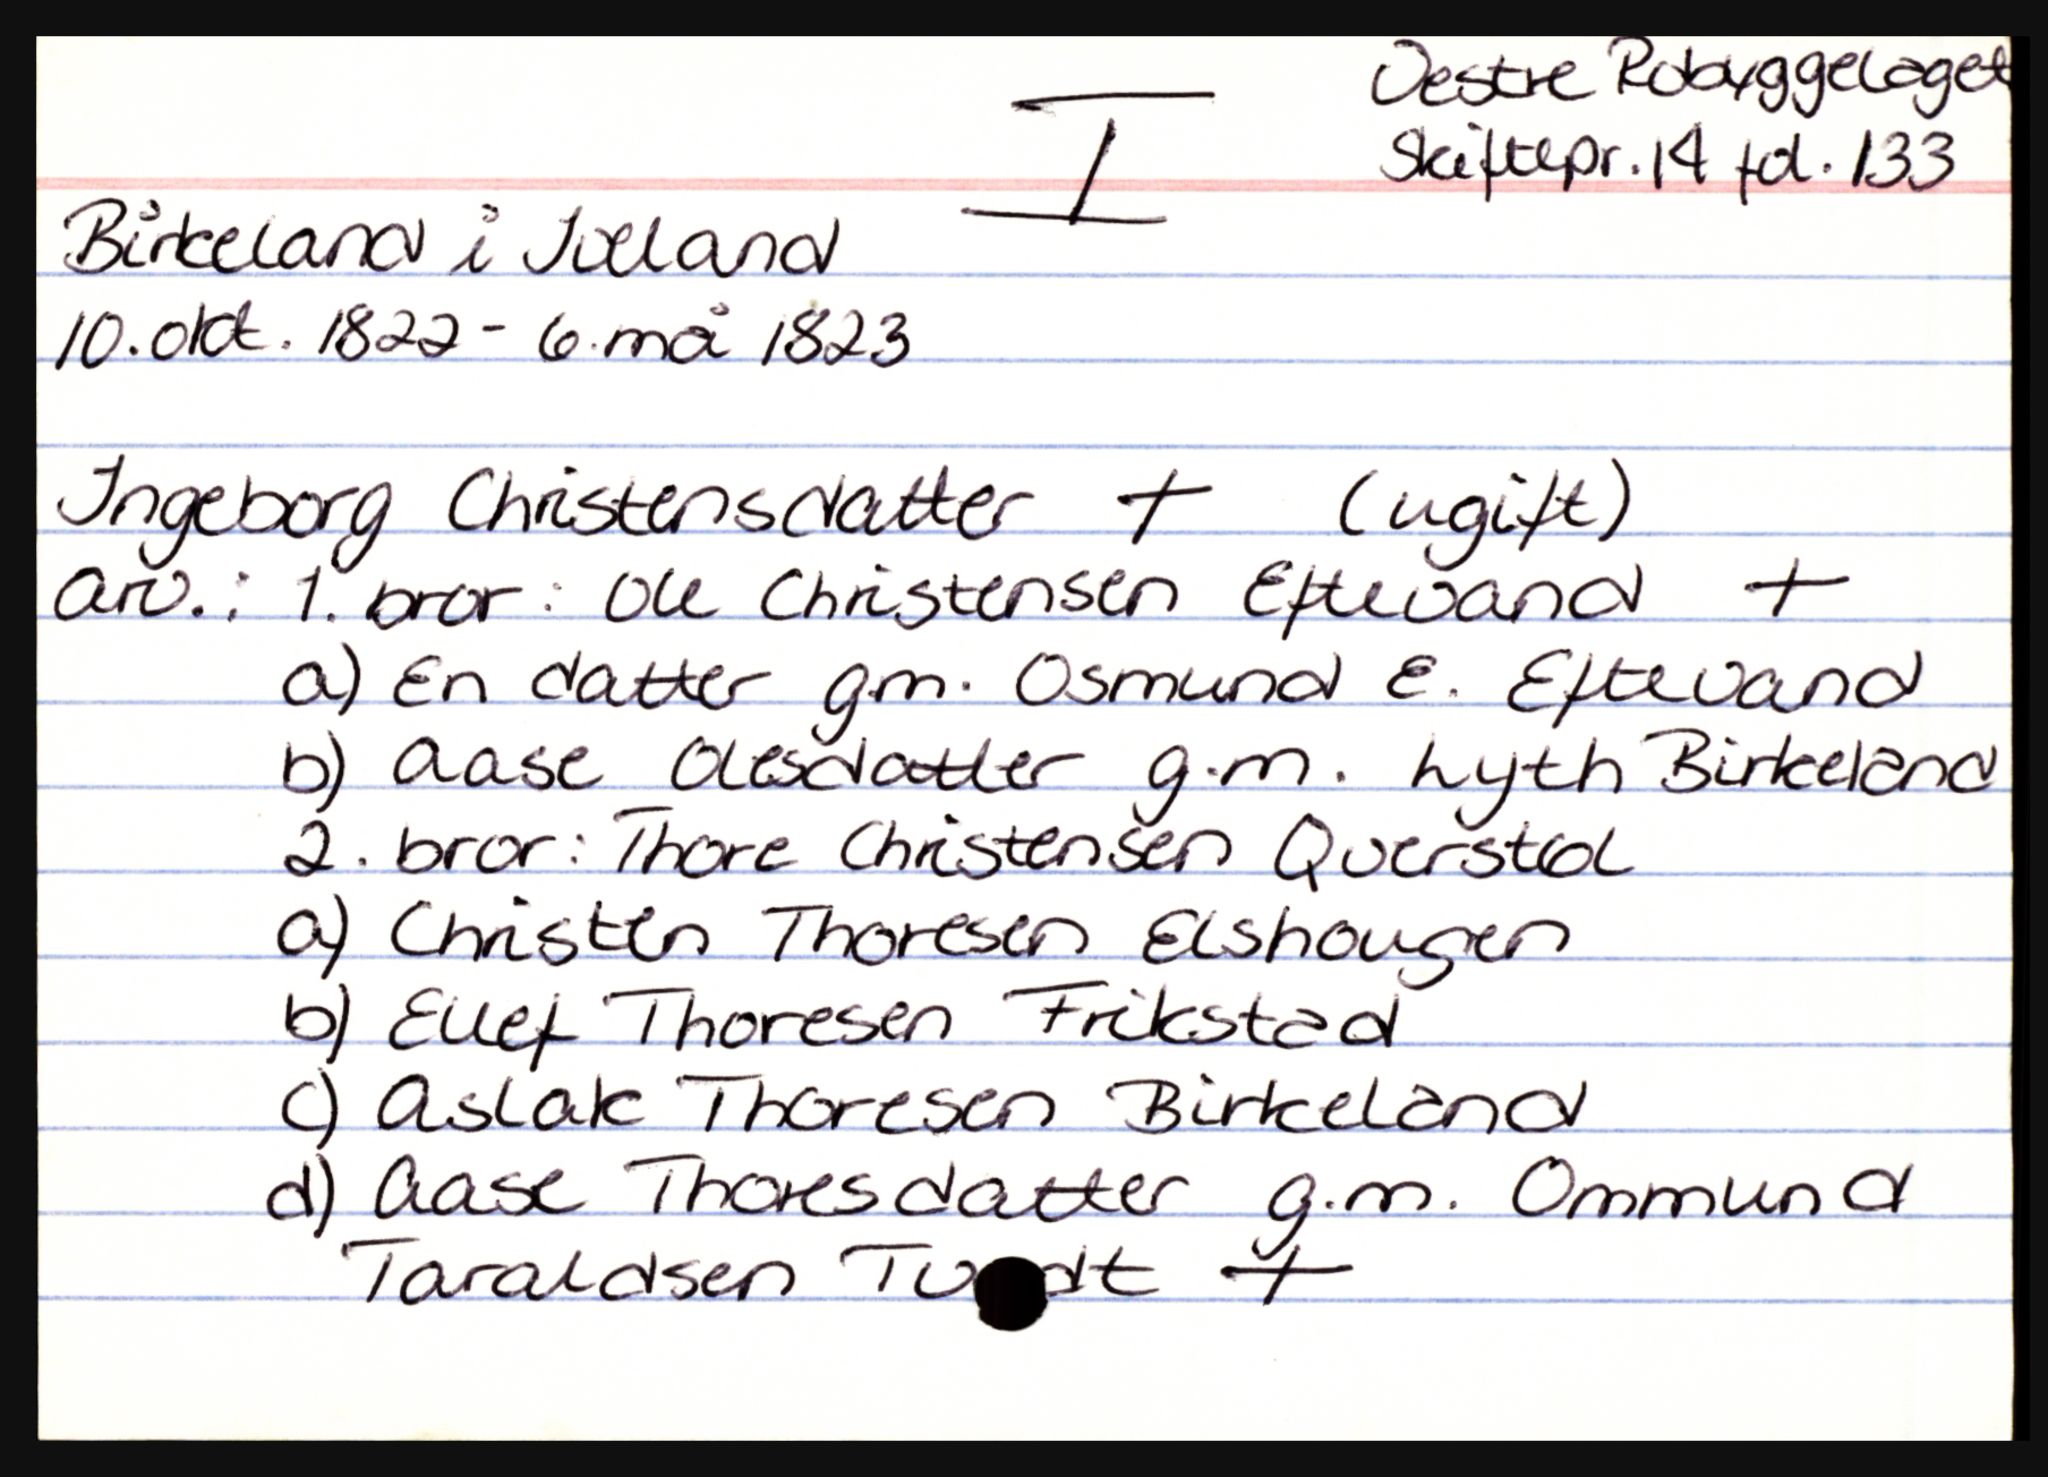 Vestre Robyggelaget
I
Skiftepr. 14 fol. 133
Birkeland i Iveland
10. okt. 1822 - 6. mai 1823
Ingeborg Christensdatter + (ugift)
Arv.: 1. bror: Ole Christensen Eftevand +
a) En datter gm. Osmund E. Eftevand
b) Aase Olesdatter g.m. Lyth Birkeland
2. bror: Thore Christensen Querstøl
a) Christen Thoresen Elshougen
b) Ellef Thoresen Frikstad
c) Aslak Thoresen Birkeland
d) Aase Thoresdatter g.m. Ommund
Taraldsen +